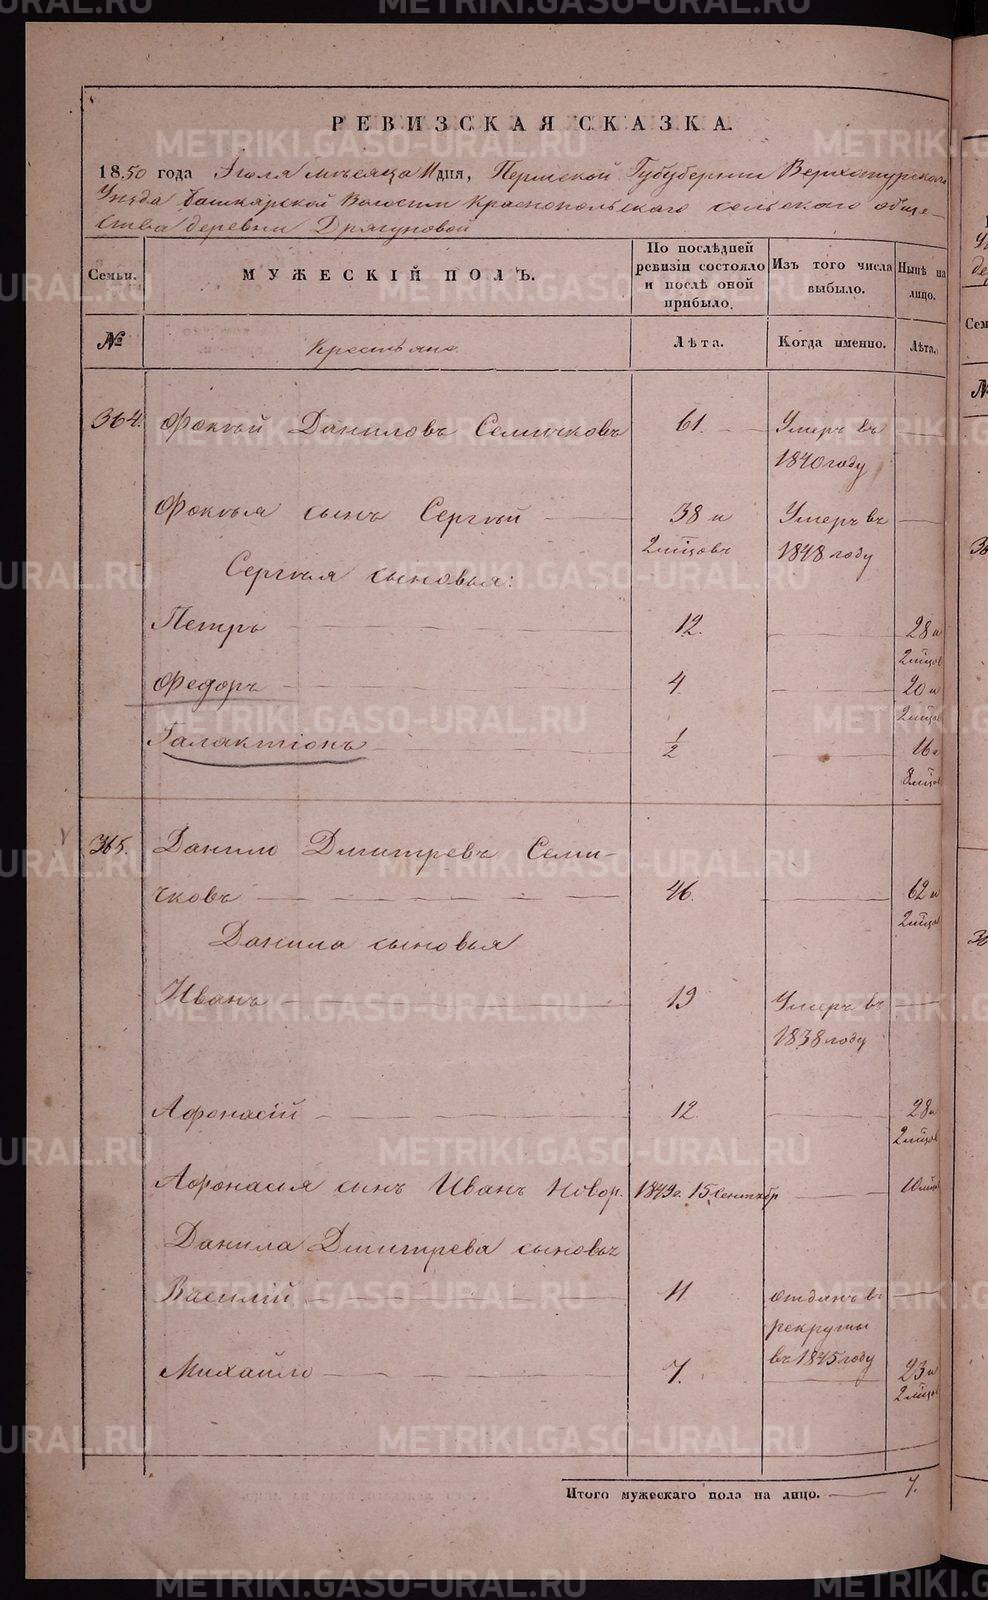 METRIKI.GASO-URAL.RU
РЕВИЗСКАЯ СКАЗКА.
1850 года Іюля мѣсяца 11 дня, Пермской Губуберніи Верхотурскаго
Уѣзда Башкарской Волости Краснопольскаго сельскаго обще-
ства деревни Дрягуновой
Семьи. МУЖЕСКІЙ ПОЛЪ. По послѣдней ревизіи состояло и послѣ оной прибыло. Изъ того числа выбыло. Нынѣ на лицо.
№ Крестьяне Лѣта. Когда именно. Лѣта.
364. Фокѣй Даниловъ Семичковъ 61. Умеръ въ
1840 году
Фокѣя сынъ Сергѣй 38 и Умеръ въ
2 мѣсцовъ 1848 году
Сергѣя сыновья:
Петръ 12. 28 и
2 мѣсцов
Федоръ 4 20 и
2 мѣсцов
Галактіонъ 1/2 16 и
8 мѣсцов
365. Данило Дмитревъ Семи-
чковъ 46. 62 и
2 мѣсцов
Данила сыновья
Иванъ 19 Умеръ въ
1838 году
Афонасій 12. 28 и
2 мѣсцов
Афонасія сынъ Иванъ Новор. 1849 г. 15 Сентябр 10 мѣсцов
Данила Дмитрева сыновья
Василій 11 отданъ в
рекруты
въ 1845 году
Михайло 7. 23 и
2 мѣсцов
Итого мужескаго пола на лицо. 7.